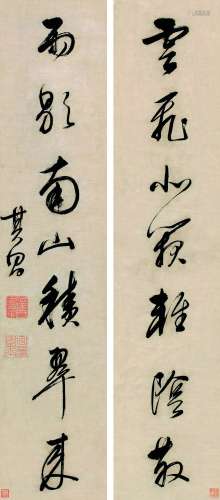 雲飛北闕輕陰散
雨歇南山積翠來
其昌